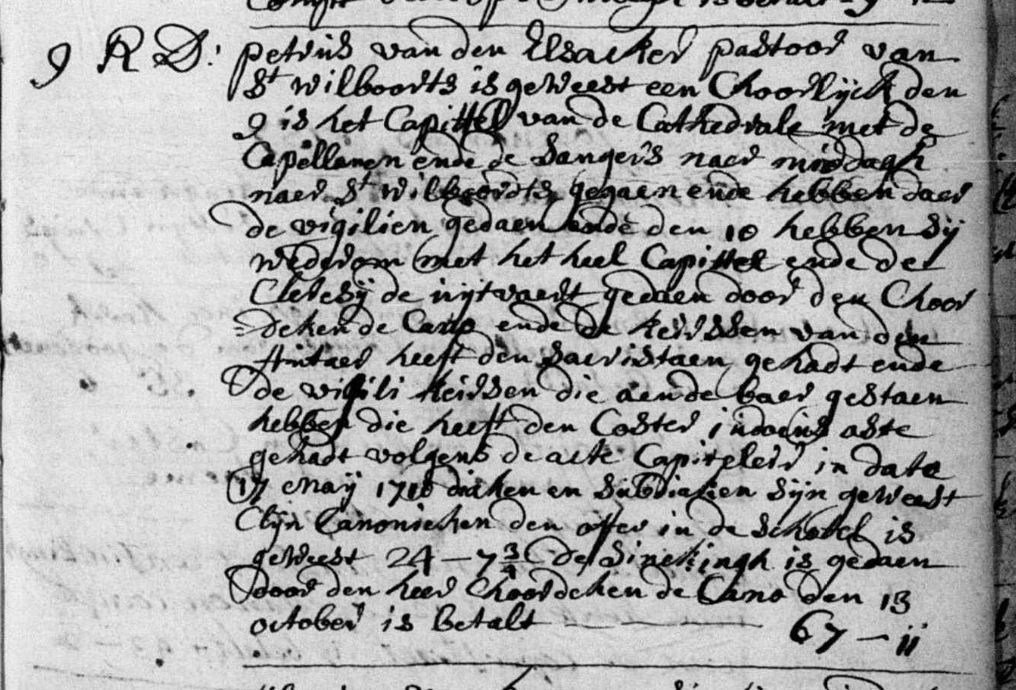 9 R D: petrus van den Elsacker pastoor van
St wilboorts is geweest een Choorlyck den
9 is het Capittel van de Cathedrale met de
Capellanen ende de Sangers naer middagh
naer St wilboordts gegaen ende hebben daer
de vigilien gedaen ende den 10 hebben sij
wederom met het heel Capittel ende de
Cleresij de uijtvaert gedaen door den Choor
=deken de Cano ende de keirssen van den
Autaer heeft den sacristaen gehadt ende
de vigili keirssen die aende baer gestaen
hebben die heeft den Coster
gehadt volgens de acte Capiteleir in date
17 Maij 1718 diaken en subdiaken sijn geweest
Clijn Canonicken den offer in de schotel is
geweest 24 - 7 3/4 de sinckingh is gedaen
door den heer Choordeken de Cano den 13
october is betalt 67 - ii